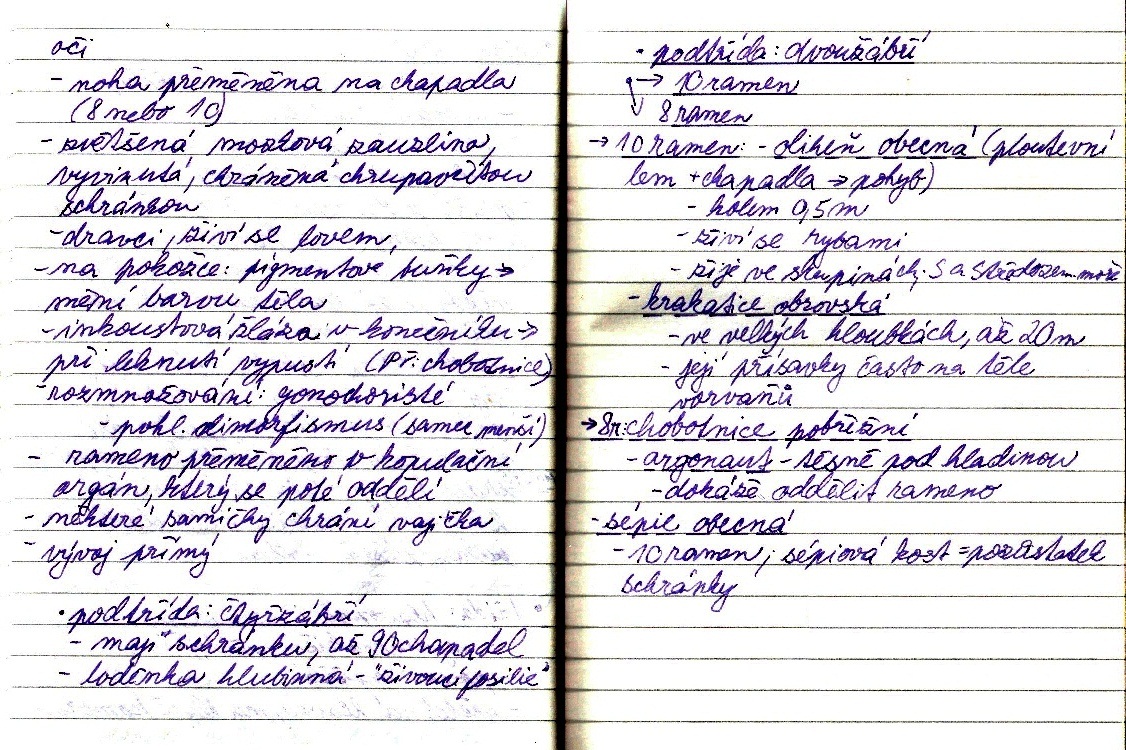 oči
- noha přeměněna na chapadla
(8 nebo 10)
- zvětšená mozková zauzlina,
vyvinutá, chráněná chrupavčitou
schránkou
- dravci, živí se lovem,
- na pokožce: pigmentové buňky →
mění barvu těla
- inkoustová žláza v konečníku →
při leknutí vypustí (Př: chobotnice)
- rozmnožování: gonochoristé
- pohl. dimorfismus (samec menší)
- rameno přeměněno v kopulační
orgán, který se poté oddělí
- některé samičky chrání vajíčka
- vývoj přímý
• podtřída: čtyřžábří
- mají schránku, až 90 chapadel
- loděnka hlubinná - "živoucí fosilie"
• podtřída: dvoužábří
→ 10 ramen
8 ramen
→ 10 ramen: - oliheň obecná (ploutevní
lem + chapadla → pohyb)
- kolem 0,5 m
- živí se rybami
- žije ve skupinách; S a Středozem. moře
- krakatice obrovská
- ve velkých hloubkách, až 20 m
- její přísavky často na těle
vorvaňů
→ 8r: chobotnice pobřežní
- argonaut - těsně pod hladinou
- dokáže oddělit rameno
- sépie obecná
- 10 ramen; sépiová kost = pozůstatek
schránky